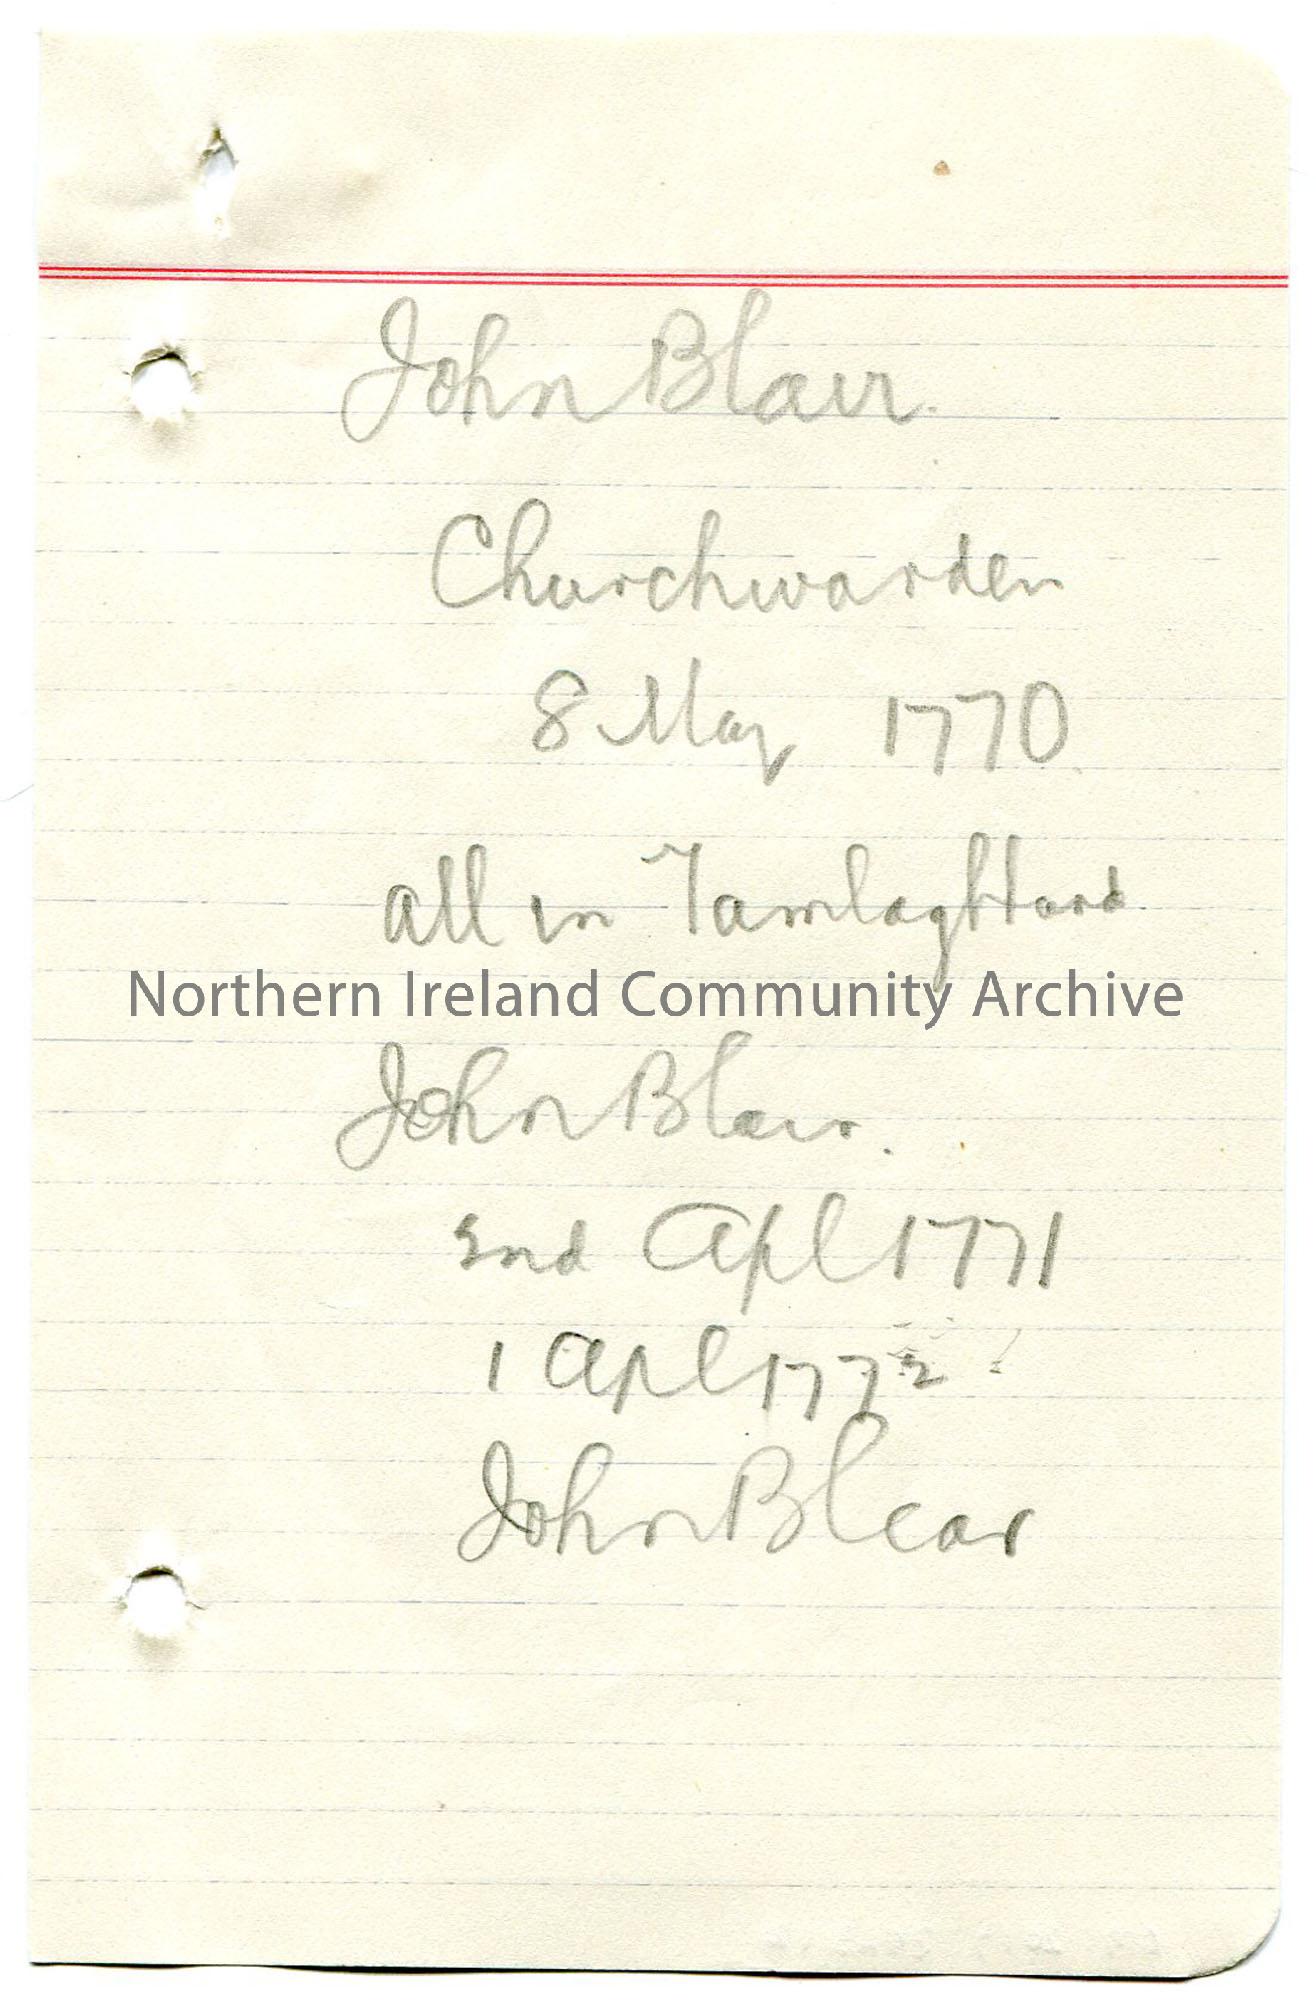 John Blair.
Churchwarden
8 May 1770.
all in Tamlaghtard
Northern Ireland Community Archive
John Blair.
2nd Apl 1771
1 Apl 1772
John Blear